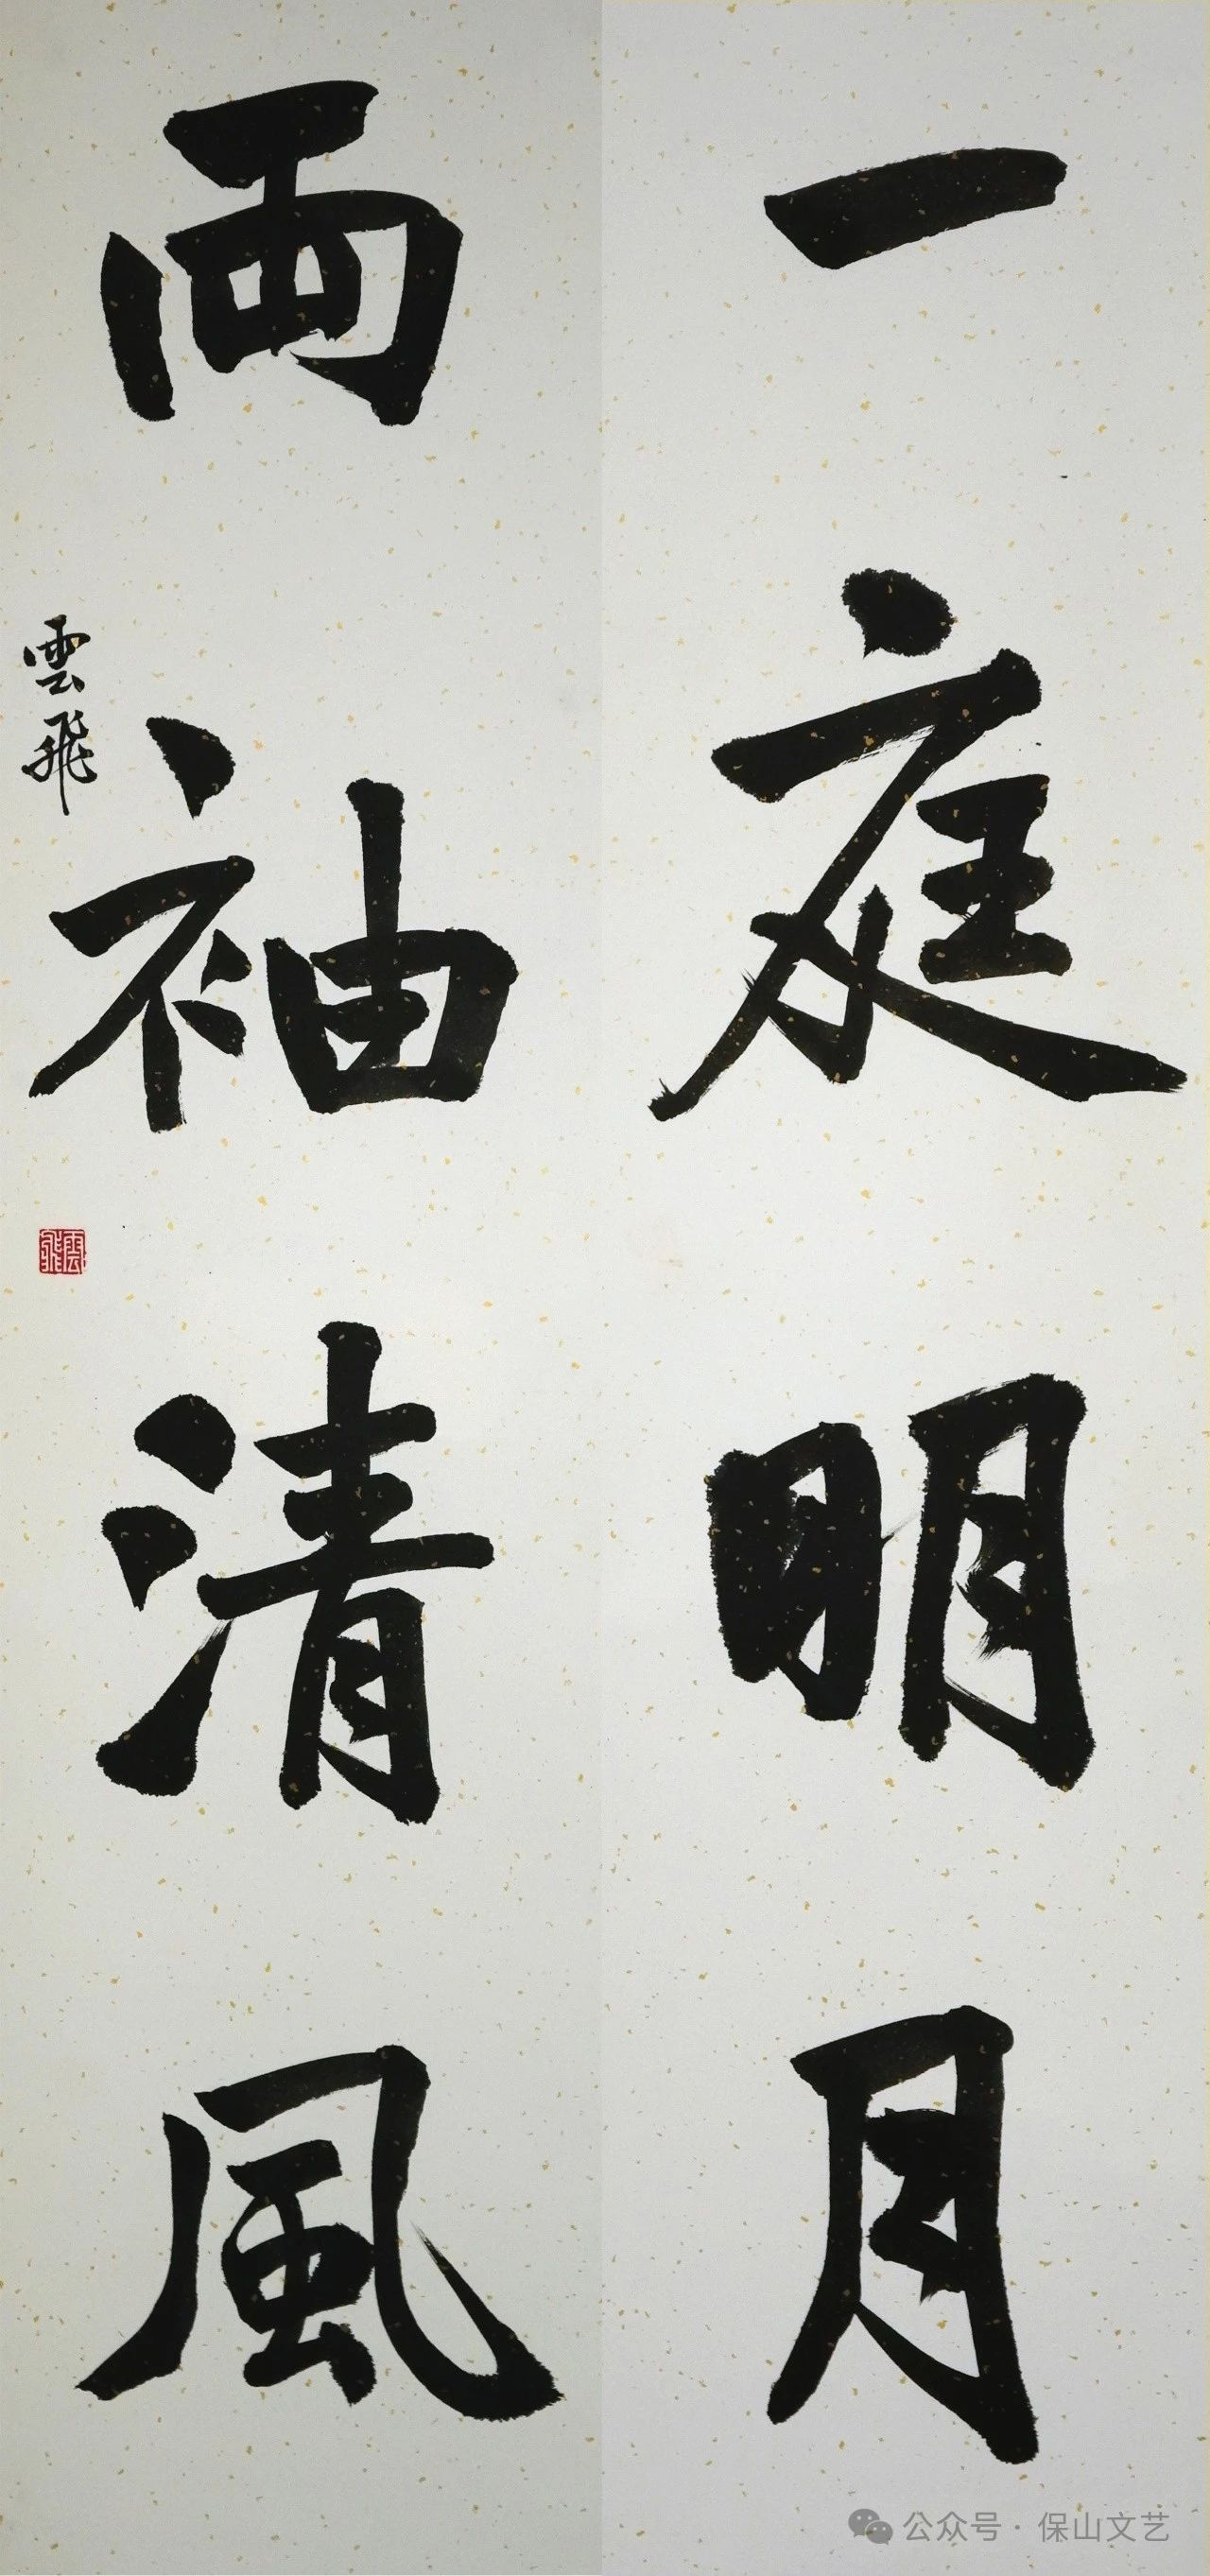 一庭明月
兩袖清風
雲飛
雲飛
公众号 · 保山文艺